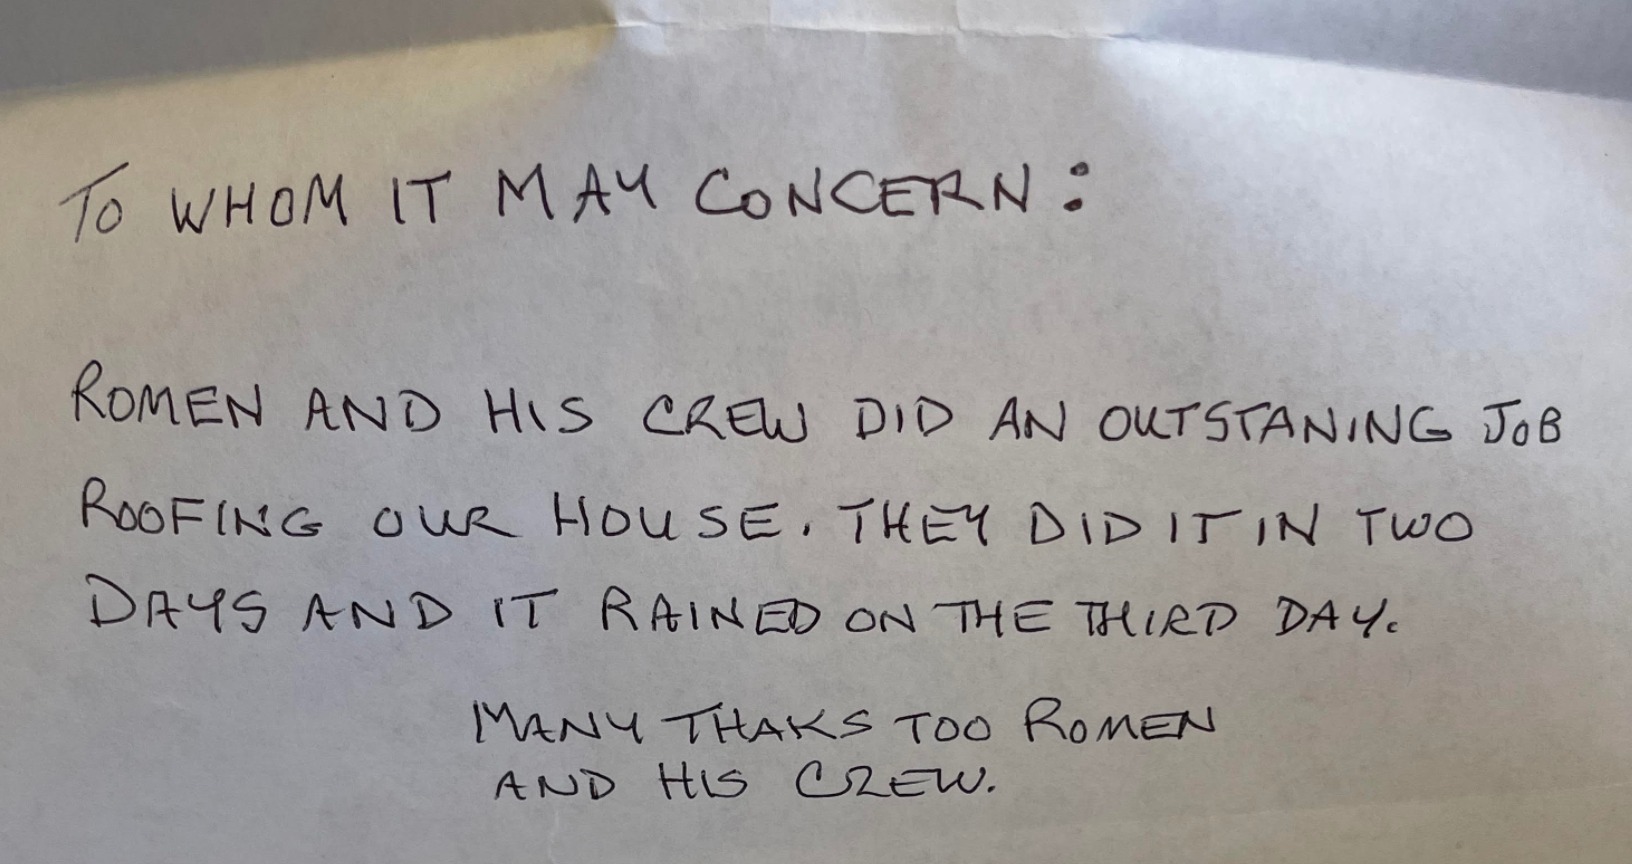 TO WHOM IT MAY CONCERN:
ROMEN AND HIS CREW DID AN OUTSTANING JOB
ROOFING OUR HOUSE. THEY DID IT IN TWO
DAYS AND IT RAINED ON THE THIRD DAY.
MANY THAKS TOO ROMEN
AND HIS CREW.